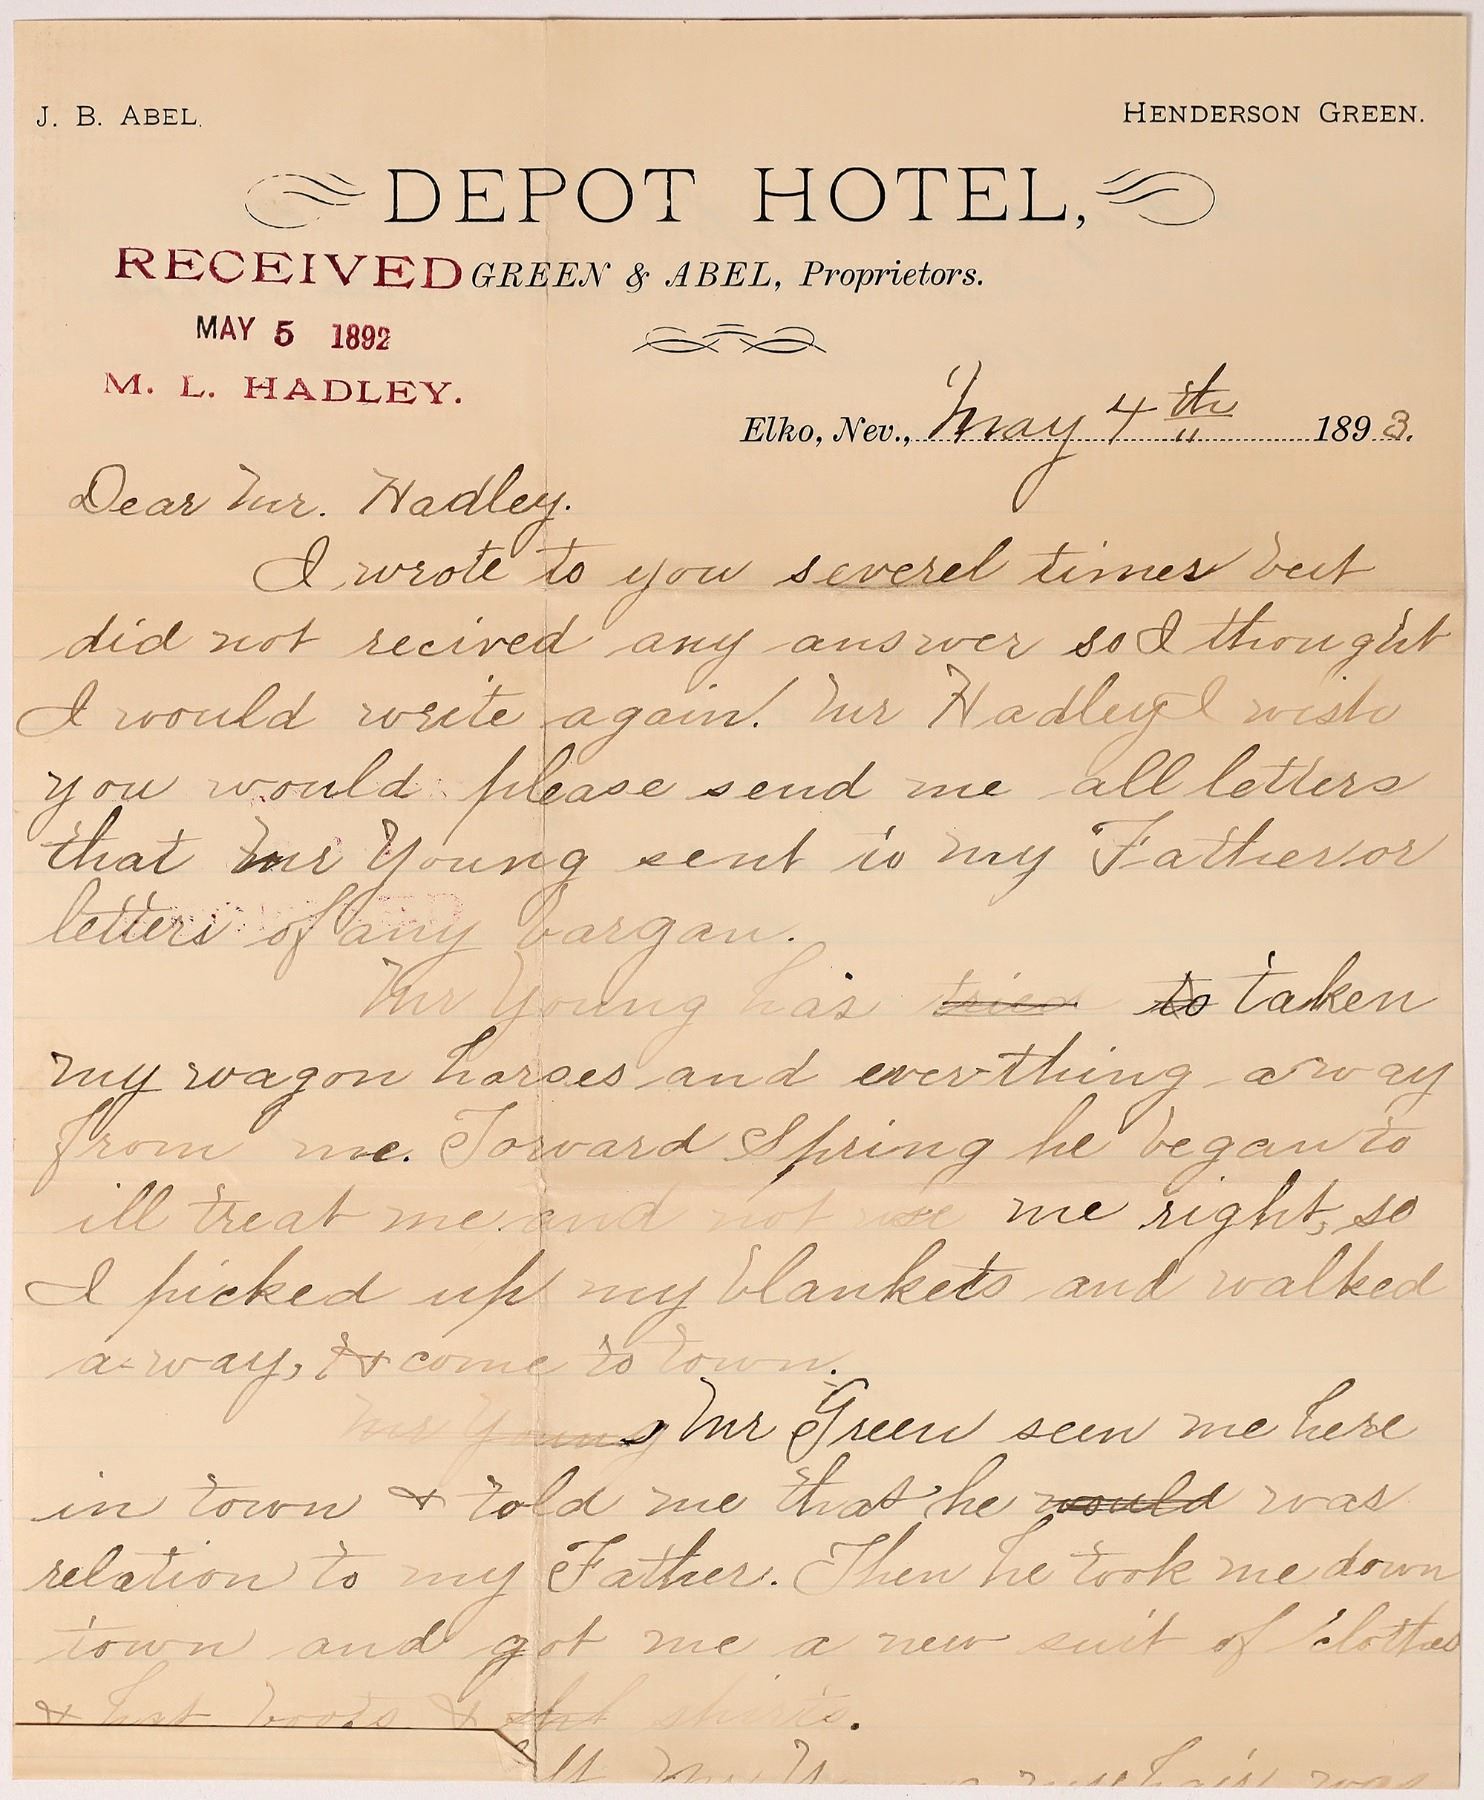 J. B. ABEL.
HENDERSON GREEN.
DEPOT HOTEL,
RECEIVED
GREEN & ABEL, Proprietors.
MAY 5 1892
M. L. HADLEY.
Elko, Nev., May 4th 1893.
Dear Mr. Hadley.
I wrote to you severel times but
did not recived any answer so I thought
I would write again. Mr Hadley I wish
you would please send me all letters
that Mr Young sent to my Father or
letters of any bargan.
Mr Young has tried to taken
my wagon horses and ever-thing away
from me. Torward Spring he began to
ill treat me and not use me right, so
I picked up my blankets and walked
a-way, & come to town.
Mr Young Mr Green seen me here
in town & told me that he would was
relation to my Father. Then he took me down
town and got me a new suit of clothes
& hat boots & sht shirts.